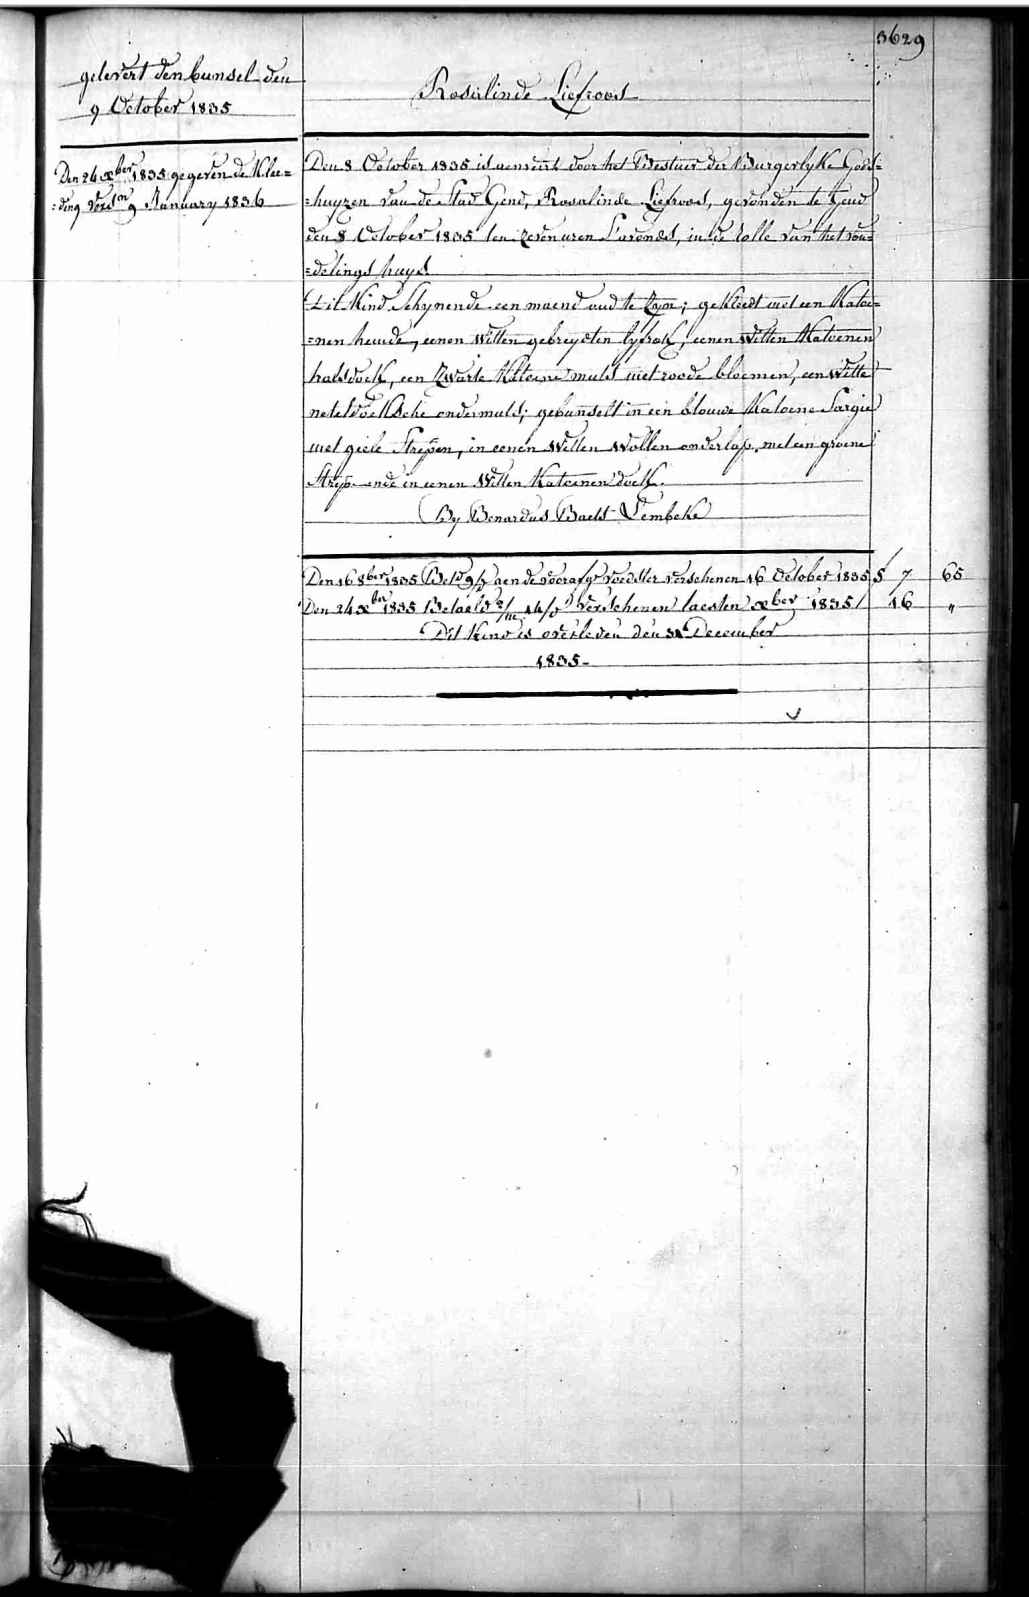 3629
gelevert den bunsel den
9 October 1835
Rosalinde Liefroost
Den 24 xber 1835 gegeven de Klee=
=ding versten 9 January 1836
Den 8 October 1835 is aenveirt door het Bestuer der Burgerlyke Gods=
=huyzen van de Stad Gend, Rosalinde Liefroost, gevonden te Gend
den 8 October 1835 ten zeven uren S'avonds, in de rolle van het von=
=delings huys.
Dit Kind Schynende een maend oud te zyn; gekleed met een Katoe=
=nen hemde, eenen Witten gebreyden lyfrok, eenen Witten Katoenen
halsdoek, een Zwarte Katoene muts met roode bloemen, een Witte
neteldoeksche ondermuts; gebunselt in een blouwe Katoene Sargie
met geele Strepen, in eenen Witten Wollen onderlap, met een groene
Stryp ende in eenen Witten Katoenen doek.
By Benardus Baelt Lembeke
Den 16 8ber 1835 Bet. 9/7 aen de voorafgr voedster verschenen 16 October 1835 5 7 65
Den 24 xber 1835 Betaeld 2/m 14/d verschenen laesten xber 1835 / 16 "
Dit Kind is overleden den 31 December
1835-